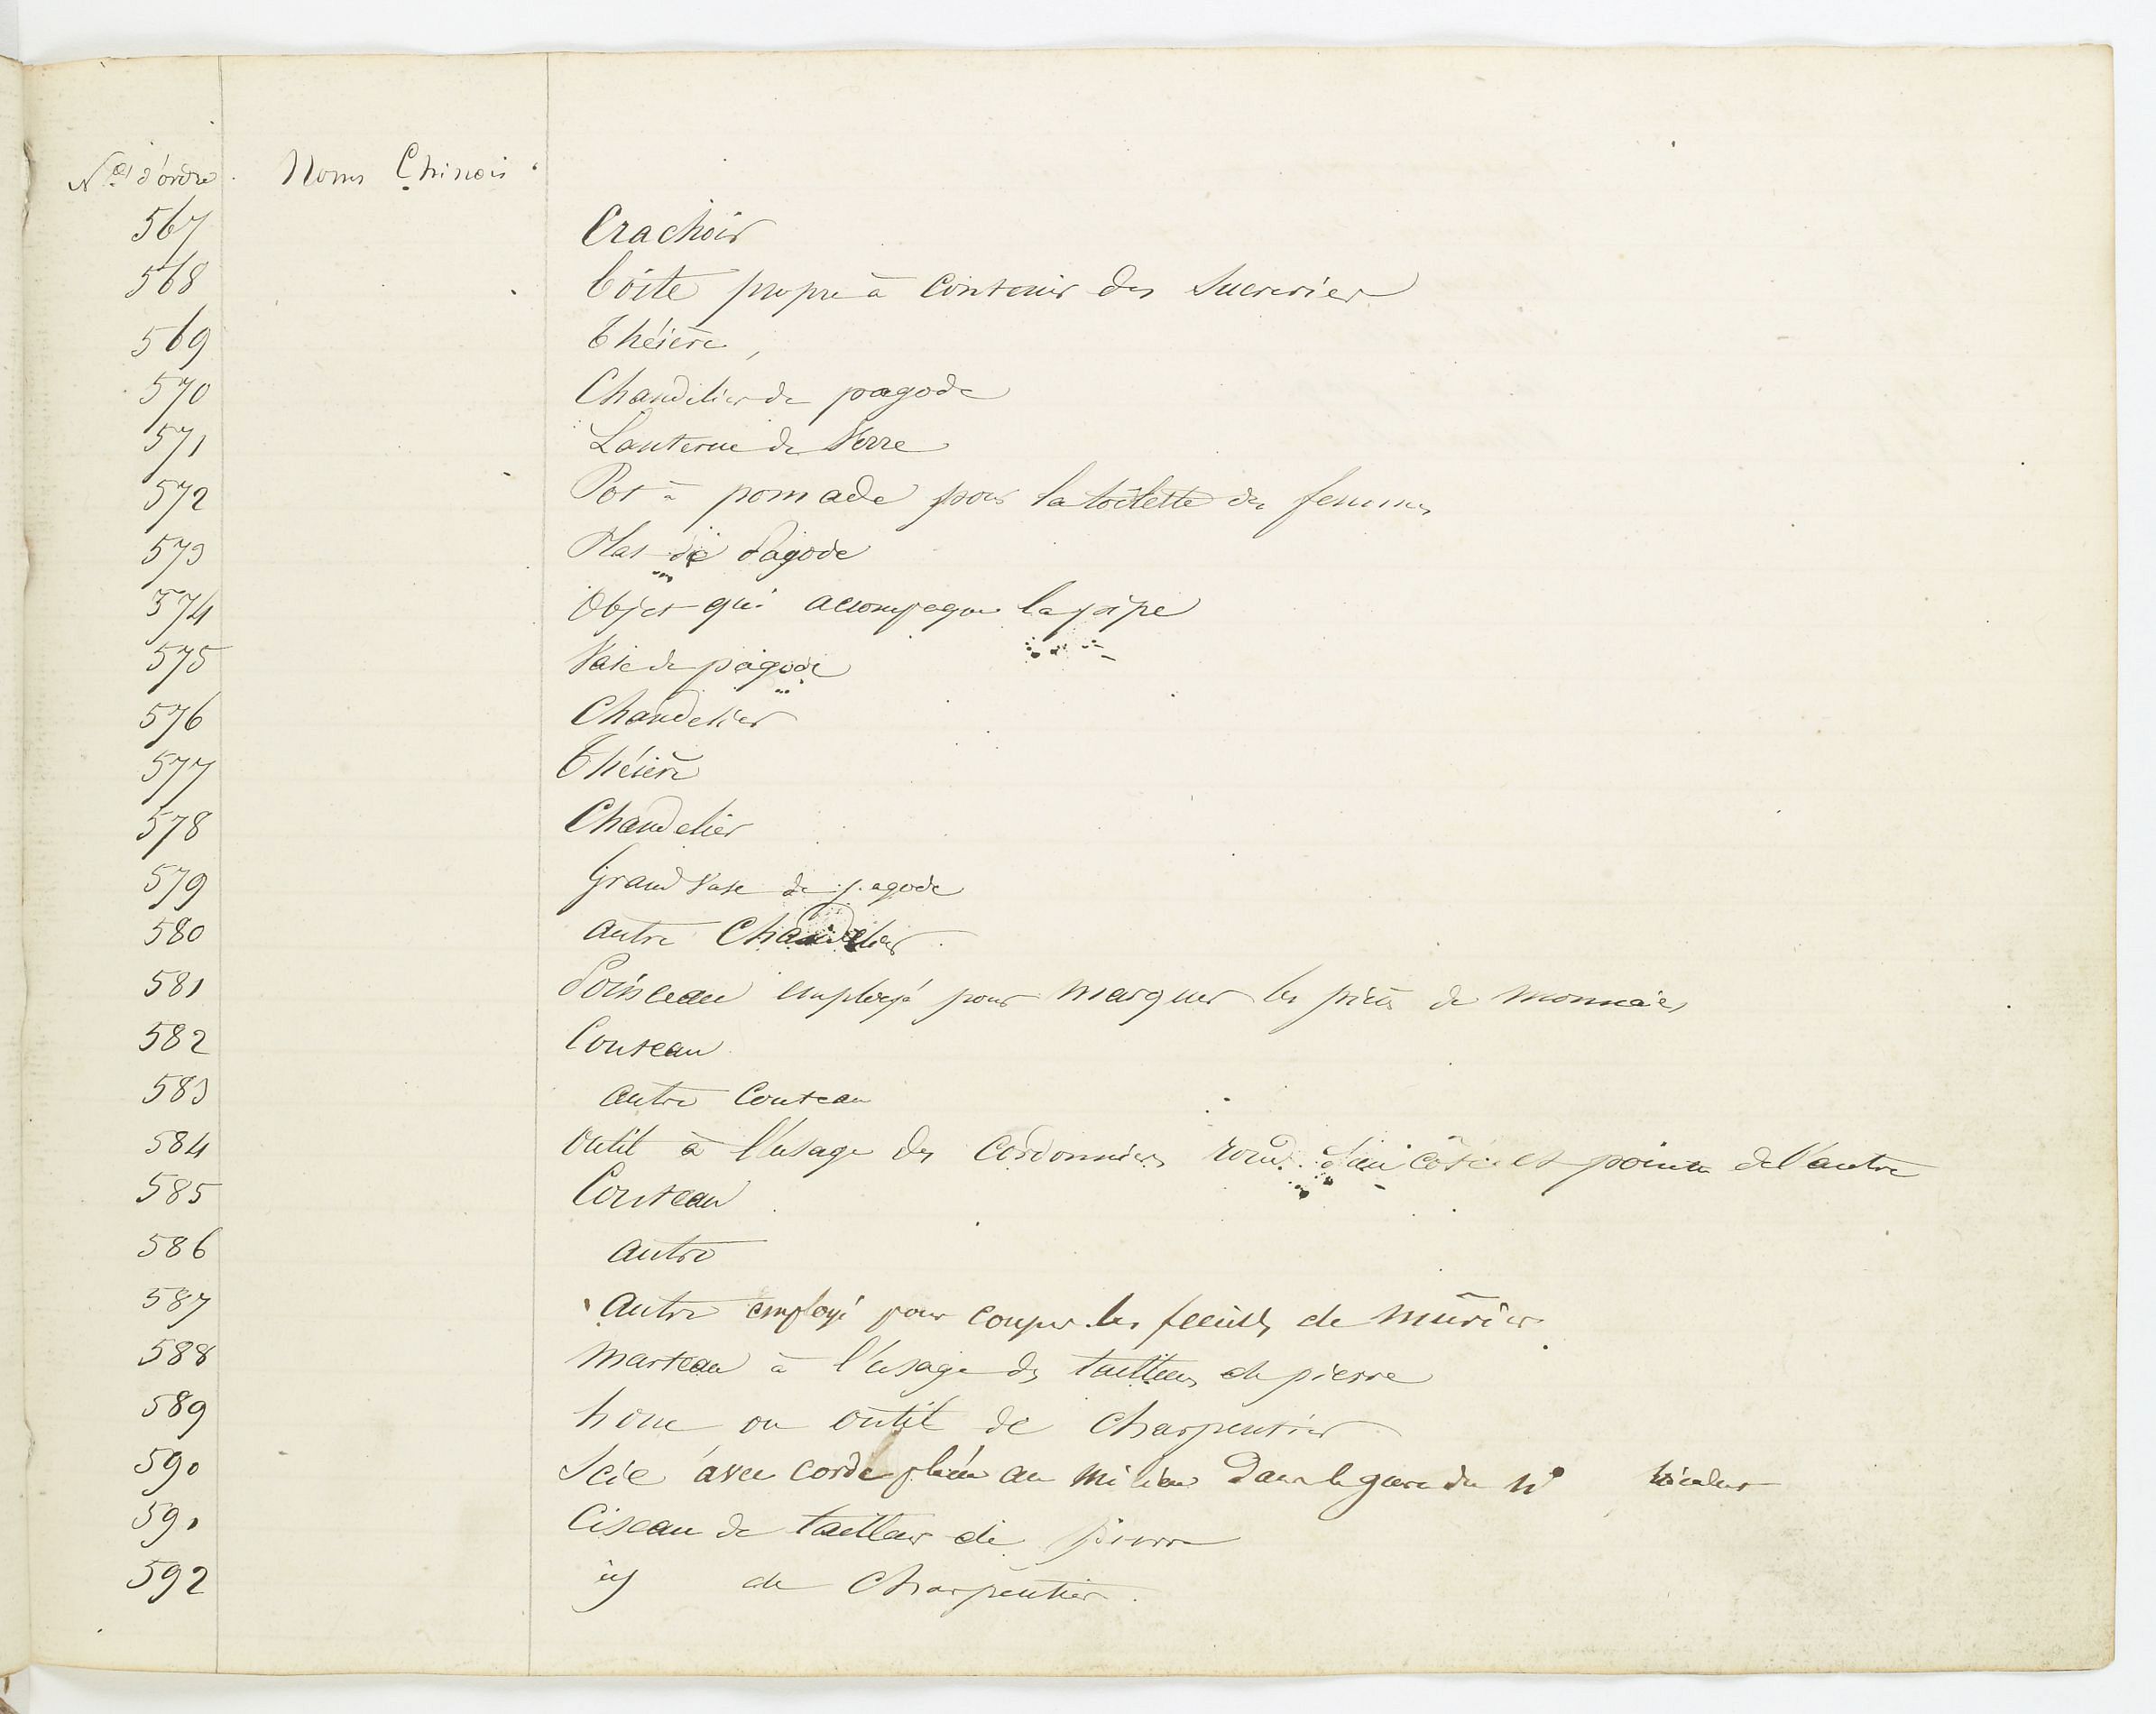 Nos d'ordre. Noms Chinois.
567 Crachoir
568 boite propre à contenir des sucreries
569 théière,
570 Chandelier de pagode
571 Lanterne de Verre
572 Pot à pomade pour la toilette des femmes
573 Plat de Pagode
574 Objet qui accompagne la pipe
575 Vase de pagode
576 Chandelier
577 Théière
578 Chandelier
579 Grand Vase de pagode
580 autre Chandelier.
581 Poinceau employé pour marquer les pièces de monnaies
582 Couteau
583 autre Couteau
584 Outil à l'usage des Cordonniers rond d'un côté et pointu de l'autre
585 Couteau
586 autre
587 autre employé pour couper les feuilles de mûrier
588 Marteau à l'usage des tailleurs de pierre
589 houe ou outil de Charpentier
590 Scie avec corde placée au milieu dans le genre du No
591 Ciseau de tailleur de pierre
592 id de Charpentier.